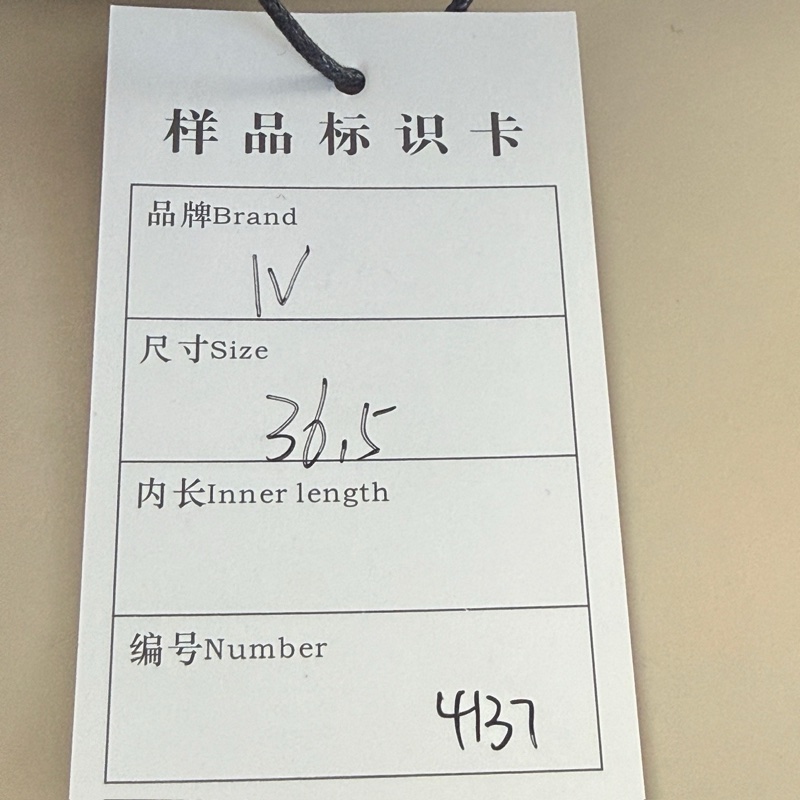 样品标识卡
品牌Brand
IV
尺寸Size
36.5
内长Inner length
编号Number
4137